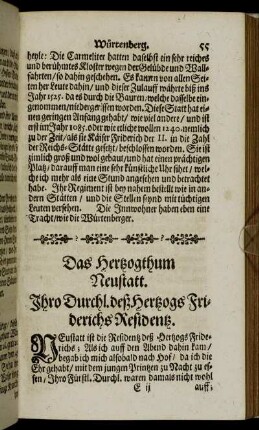 Würtenberg. 55
heyle: Die Carmeliter hatten daselbst ein sehr reiches
und berühmtes Kloster wegen der Gelübde und Wall-
fahrten/ so dahin geschehen. Es kamen von allen Sei-
ten her Leute dahin/ und dieser Zulauff währte biß ins
Jahr 1525. da es durch die Bauren/ welche dasselbe ein-
genommen/ niedergerissen worden. Diese Statt hat ei-
nen geringen Anfang gehabt/ wie viel andere/ und ist
erst im Jahr 1085. oder wie etliche wollen 1240. nemlich
zu der Zeit/ als sie Käiser Friderich der II. in die Zahl
der Reichs-Stätte gesetzt/ beschlossen worden. Sie ist
zimlich groß und wol gebaut/ und hat einen prächtigen
Platz/ darauff man eine sehr künstliche Uhr sihet/ wel-
che ich mehr als eine Stund angesehen und betrachtet
habe. Ihr Regiment ist bey nahem bestellt wie in an-
dern Stätten/ und die Stellen seynd mit tüchtigen
Leuten versehen. Die Innwohner haben eben eine
Tracht/ wie die Würtenberger.
Das Hertzogthum
Neustatt.
Ihro Durchl. deß Hertzogs Fri-
derichs Residentz.
NEustatt ist die Residentz deß Hertzogs Fride-
richs; Als ich auff den Abend dahin kam/
begab ich mich alsobald nach Hof/ da ich die
Ehr gehabt/ mit dem jungen Printzen zu Nacht zu es-
sen/ Ihro Fürstl. Durchl. waren damals nicht wohl
E ij auff;